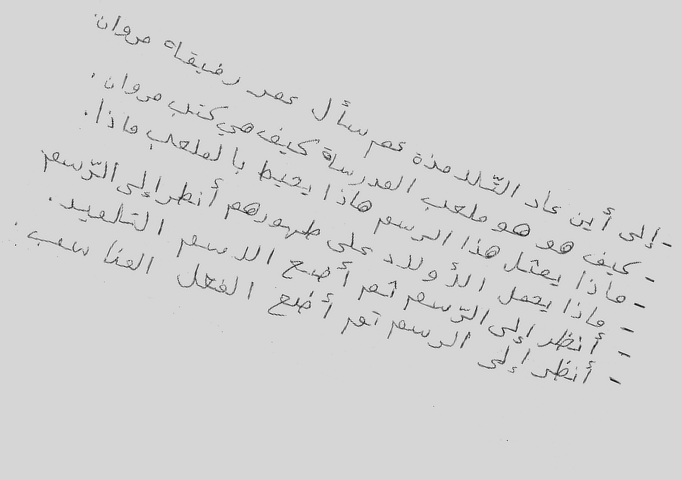 - إلى أين عاد التلامذة عم سأل عمر رفيقه مروان
- كيف هو ملعب المدرسة كيف هي كتب مروان.
- ماذا يمثل هذا الرسم هاذا يحيط بالملعب ماذا.
- ماذا يحمل الأولاد على ظهورهم أنظر إلى الرّسم
- أنظر إلى الرّسم ثم أضع الاسم التلميد.
- أنظر إلى الرسم تم أضع الفعل المناسب.